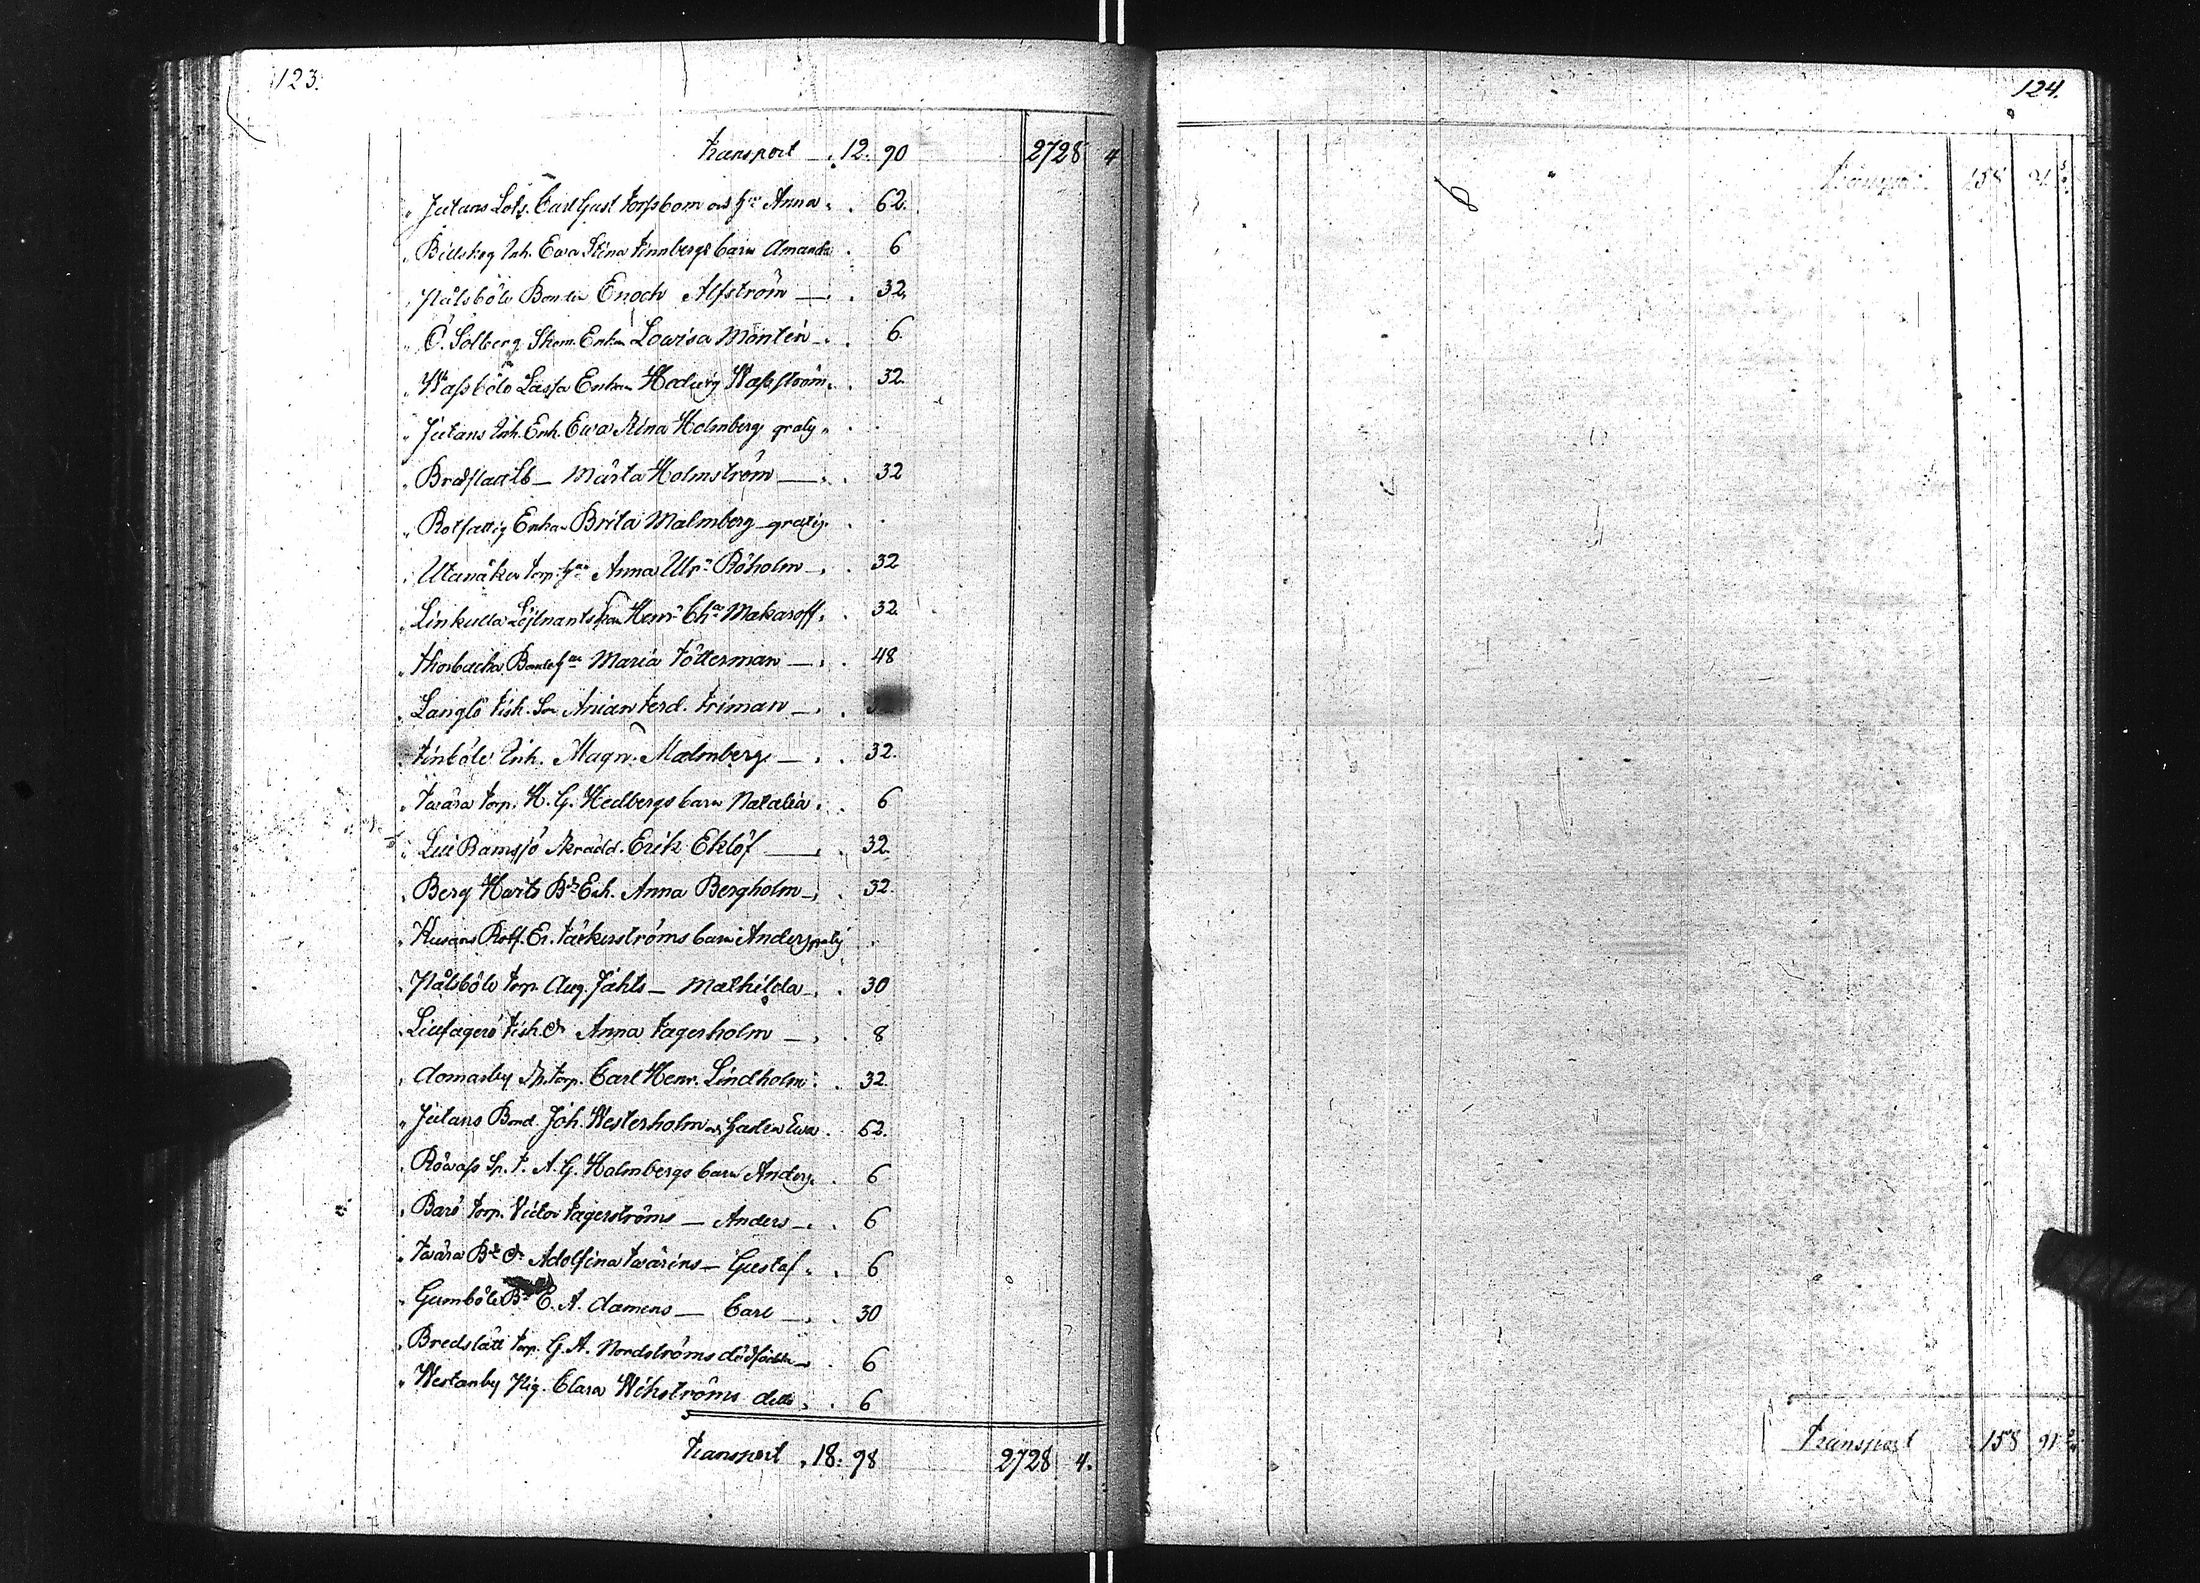 123.
Transport 12. 90 2728 4
" Jutans Lots. Carl Gust Forssbom och Hu Anna 62.
" Billskog Inh. Ewa Stina Finnbergs barn Amanda 6
" Pålsböle Bonden Enoch Alfström 32.
" Ö. Solberg Skom. Enkan Lowisa Montén 6.
" Wassböle Lassa Enkan Hedwig Wassström 32.
" Jutans Inh. Enk. Ewa Stina Holmberg gratis
" Bredslätt Märta Holmström 32
" Rotfattig Enkan Brita Malmberg gratis
" Utanåker torp. Hu Anna Ulr. Röholm 32
" Linkulla Löjtnants Frun Henr. Cha Makaroff 32.
" Thorbacka Bonde Hu Maria Fötterman 48
" Langlö Fisk. Son Anian Ferd. Friman
" Finböle Inh. Magn. Malmberg 32.
" Twära torp. H. G. Hedbergs barn Natalia 6
" Lill Ramsjö Skrädd. Erik Eklöf 32.
" Berg Harts Bd Enk. Anna Bergholm 32.
" Husans Rotf. Er. Täckerströms barn Anders gratis
" Pålsböle torp. Aug. Jåhls — Mathilda 30
" Lillfagerö Fisk. Dr Anna Fagerholm 8
" Domarby Sp. torp. Carl Henr. Lindholm 32.
" Jutans Bond. Joh. Westerholm och Gadden Ewa 62.
" Röwass Sp. T. A. G. Holmbergs barn Anders 6
" Barö torp. Victor Fagerströms — Anders 6
" Twära Bd Dr Adolfina Twärins — Gustaf 6
" Gumböle Bd E. A. Damens — Carl 30
" Bredslätt torp. G. A. Nordströms dödfödda 6
" Westanby Pig. Clara Wikströms detto 6
Transport 18. 98 2728 4.
124.
Transport 158 91
Transport 158 91